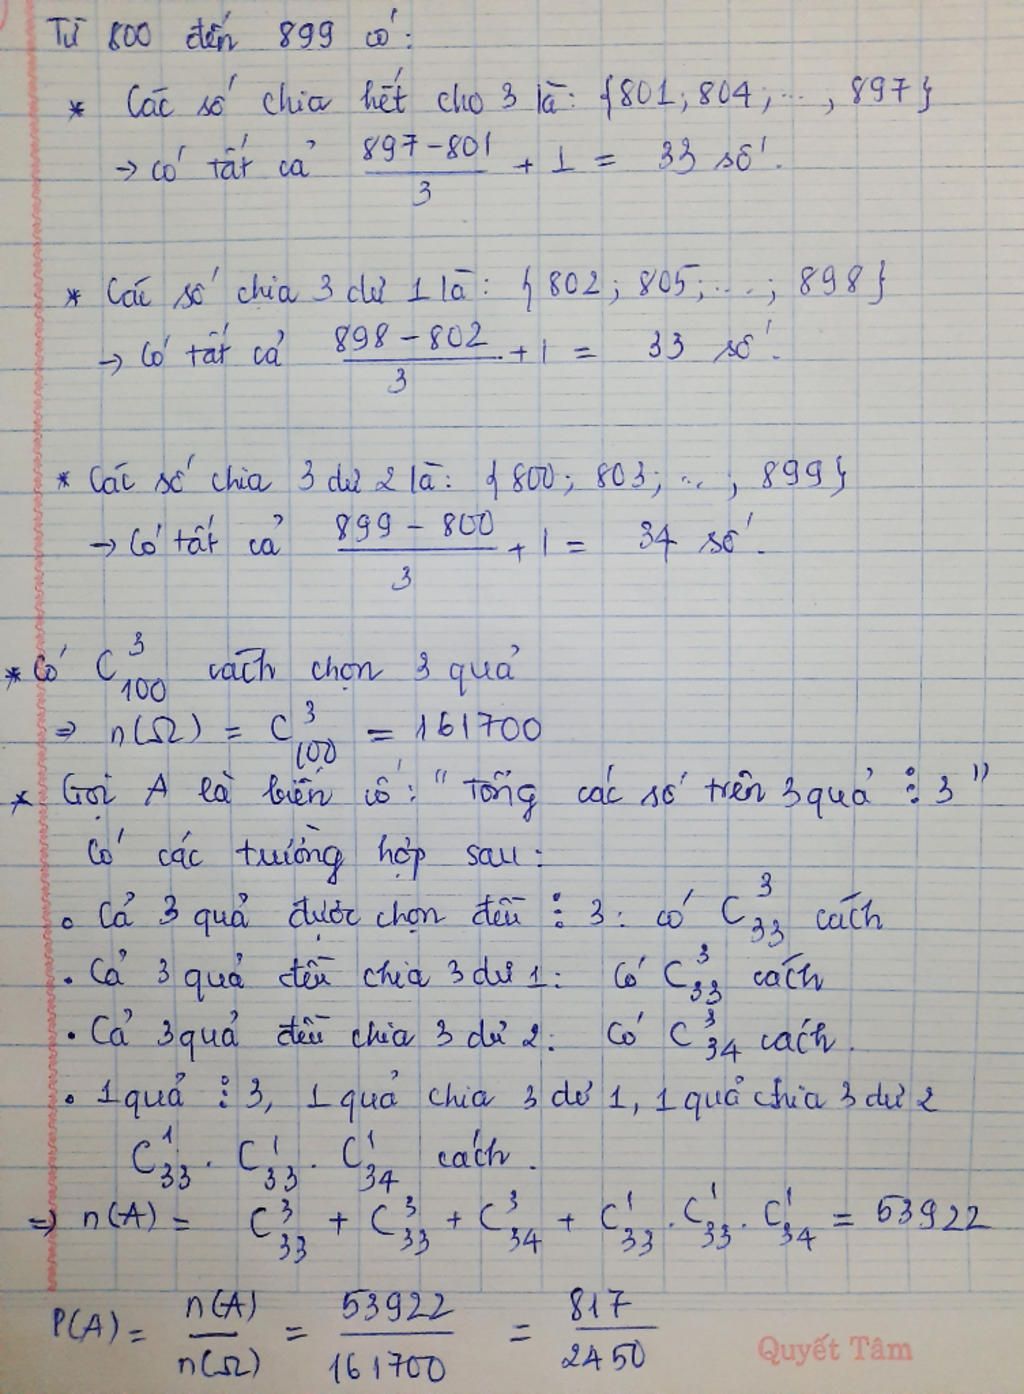 Từ 800 đến 899 có:
* Các số chia hết cho 3 là: {801; 804; ..., 897}
→ có tất cả (897 - 801)/3 + 1 = 33 số.
* Các số chia 3 dư 1 là: {802; 805; ...; 898}
→ Có tất cả (898 - 802)/3 + 1 = 33 số.
* Các số chia 3 dư 2 là: {800; 803; ..., 899}
→ Có tất cả (899 - 800)/3 + 1 = 34 số.
* Có C³₁₀₀ cách chọn 3 quả
⇒ n(Ω) = C³₁₀₀ = 161700
* Gọi A là biến cố: "Tổng các số trên 3 quả ⋮ 3"
Có các trường hợp sau:
• Cả 3 quả được chọn đều ⋮ 3: có C³₃₃ cách
• Cả 3 quả đều chia 3 dư 1: Có C³₃₃ cách
• Cả 3 quả đều chia 3 dư 2: Có C³₃₄ cách.
• 1 quả ⋮ 3, 1 quả chia 3 dư 1, 1 quả chia 3 dư 2
C¹₃₃ . C¹₃₃ . C¹₃₄ cách.
⇒ n(A) = C³₃₃ + C³₃₃ + C³₃₄ + C¹₃₃ . C¹₃₃ . C¹₃₄ = 53922
P(A) = n(A)/n(Ω) = 53922/161700 = 817/2450
Quyết Tâm